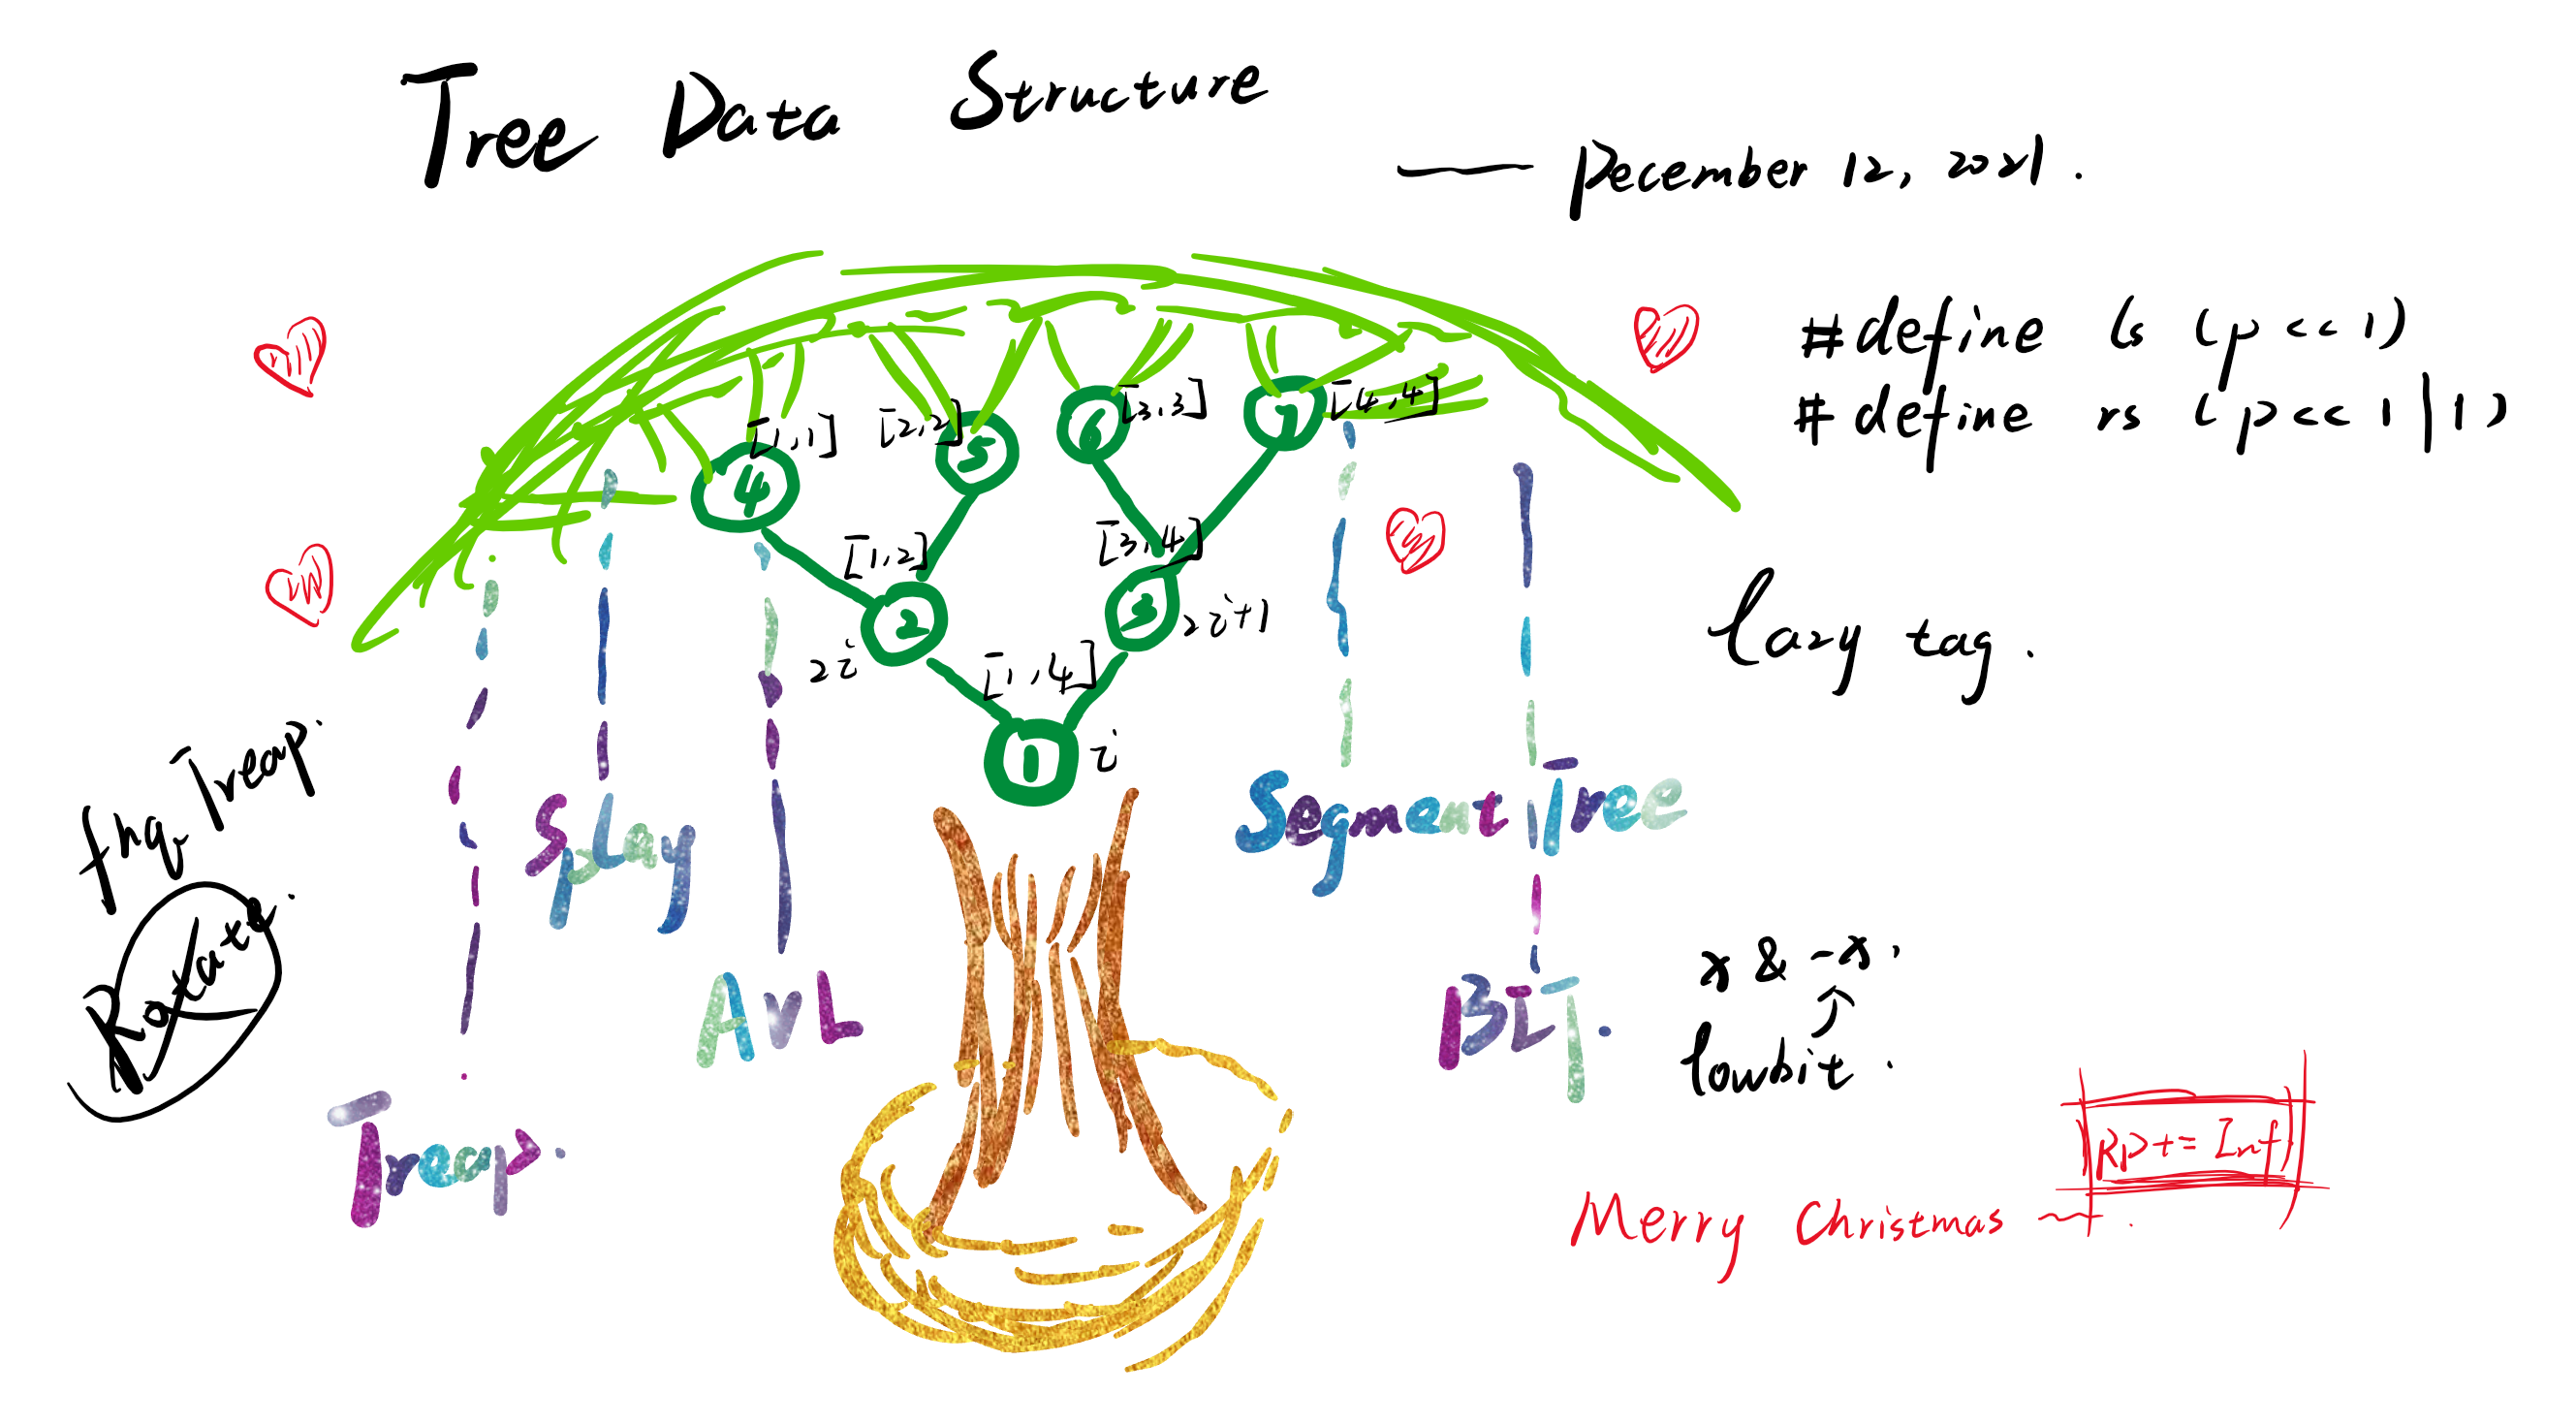 Tree Data Structure
— December 12, 2021.
#define ls (p<<1)
#define rs (p<<1|1)
[1,1]
[2,2]
[3,3]
[4,4]
4
5
6
7
[1,2]
[3,4]
2
3
2i
2i+1
[1,4]
1
i
lazy tag.
fhq Treap.
Rotate.
Splay
Segment Tree
AVL
BIT.
x & -x.
lowbit.
Treap.
RP += Inf
Merry Christmas ~.